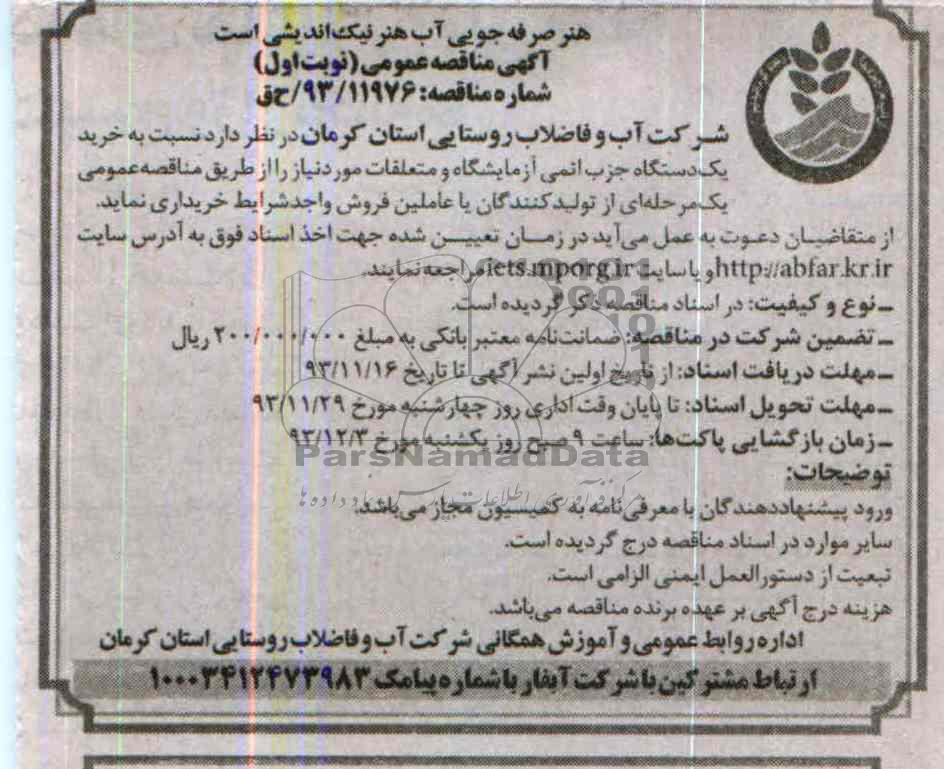 هنر صرفه جویی آب هنر نیک‌اندیشی است
آگهی مناقصه عمومی (نوبت اول)
شماره مناقصه: ۹۳/۱۱۹۷۶/ح‌ق
شرکت آب و فاضلاب روستایی استان کرمان در نظر دارد نسبت به خرید
یک‌دستگاه جزب اتمی آزمایشگاه و متعلقات موردنیاز را از طریق مناقصه عمومی
یک‌مرحله‌ای از تولیدکنندگان یا عاملین فروش واجدشرایط خریداری نماید.
از متقاضیان دعوت به عمل می‌آید در زمان تعیین شده جهت اخذ اسناد فوق به آدرس سایت
http://abfar.kr.ir و یا سایت iets.mporg.ir مراجعه نمایند.
ــ نوع و کیفیت: در اسناد مناقصه ذکر گردیده است.
ــ تضمین شرکت در مناقصه: ضمانت‌نامه معتبر بانکی به مبلغ ۲۰۰/۰۰۰/۰۰۰ ریال
ــ مهلت دریافت اسناد: از تاریخ اولین نشر آگهی تا تاریخ ۹۳/۱۱/۱۶
ــ مهلت تحویل اسناد: تا پایان وقت اداری روز چهارشنبه مورخ ۹۳/۱۱/۲۹
ــ زمان بازگشایی پاکت‌ها: ساعت ۹ صبح روز یکشنبه مورخ ۹۳/۱۲/۳
ParsNamadData
توضیحات:
ورود پیشنهاددهندگان با معرفی‌نامه به کمیسیون مجاز می‌باشد.
سایر موارد در اسناد مناقصه درج گردیده است.
تبعیت از دستورالعمل ایمنی الزامی است.
هزینه درج آگهی بر عهده برنده مناقصه می‌باشد.
اداره روابط عمومی و آموزش همگانی شرکت آب و فاضلاب روستایی استان کرمان
ارتباط مشترکین با شرکت آبفار با شماره پیامک ۱۰۰۰۳۴۱۲۴۷۳۹۸۳